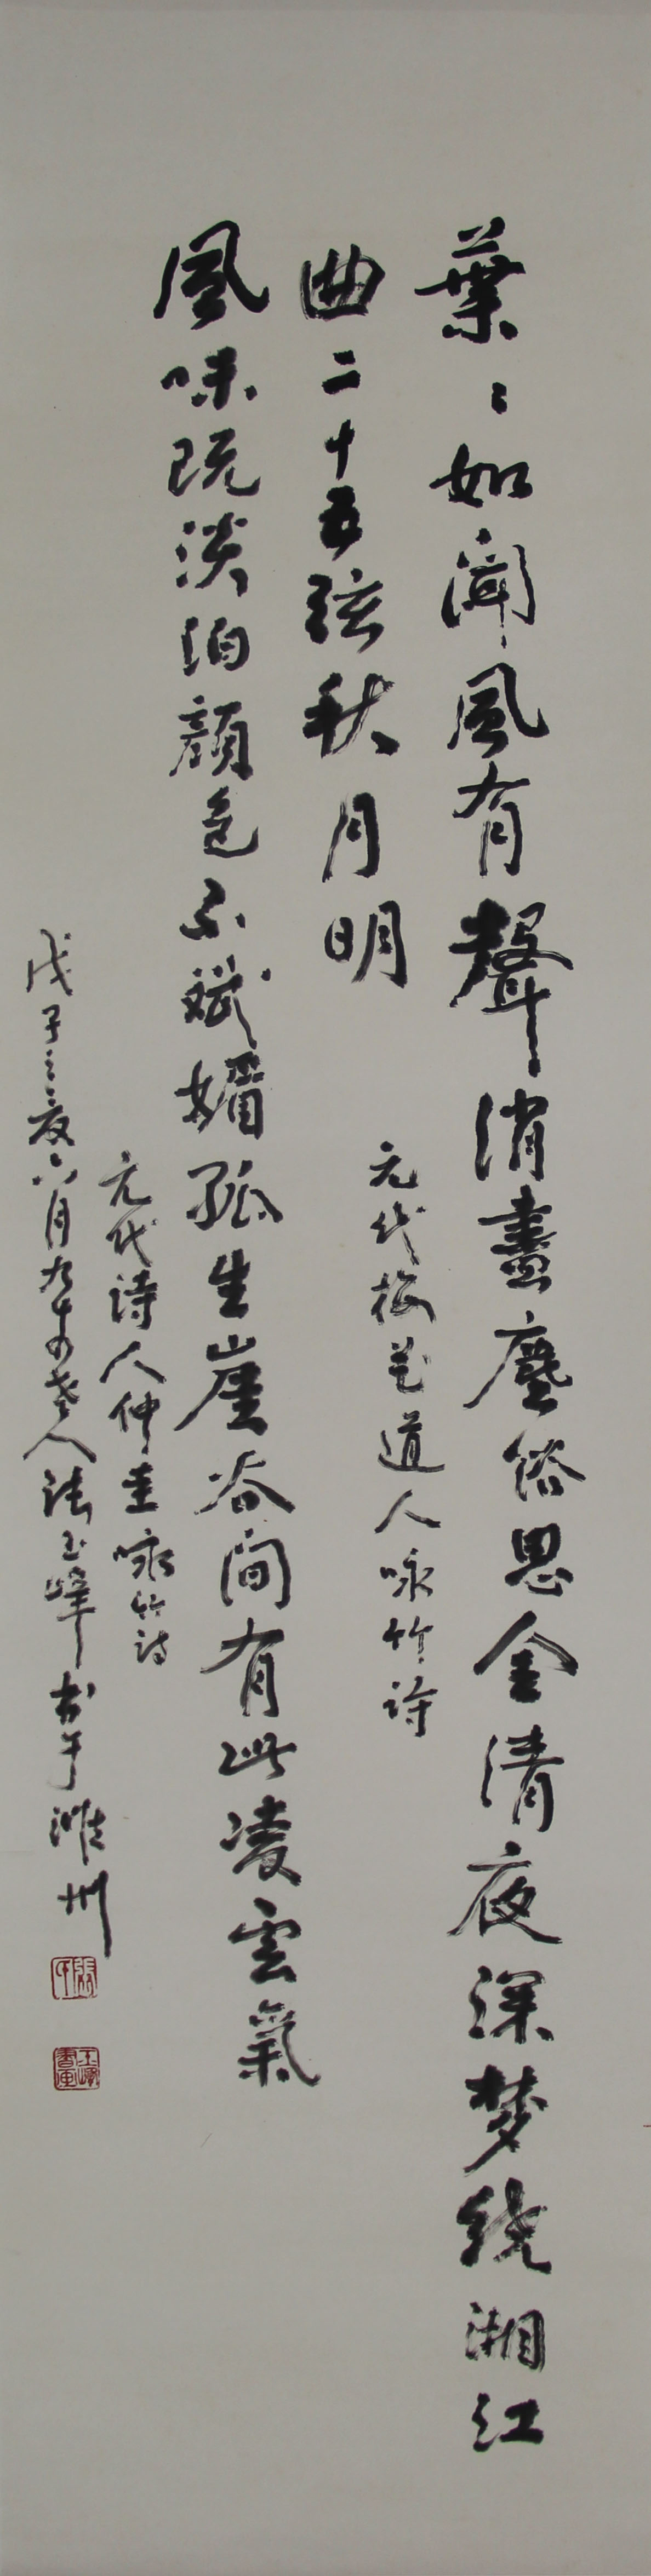 葉〻如聞風有聲消盡塵俗思全清夜深梦绕湘江
曲二十五弦秋月明
元代梅花道人咏竹诗
風味既淡泊顔色不斌媚孤生崖谷间有此凌雲氣
元代诗人仲圭咏竹诗
戊子之夏六月九十老人张玉峰书于潍州